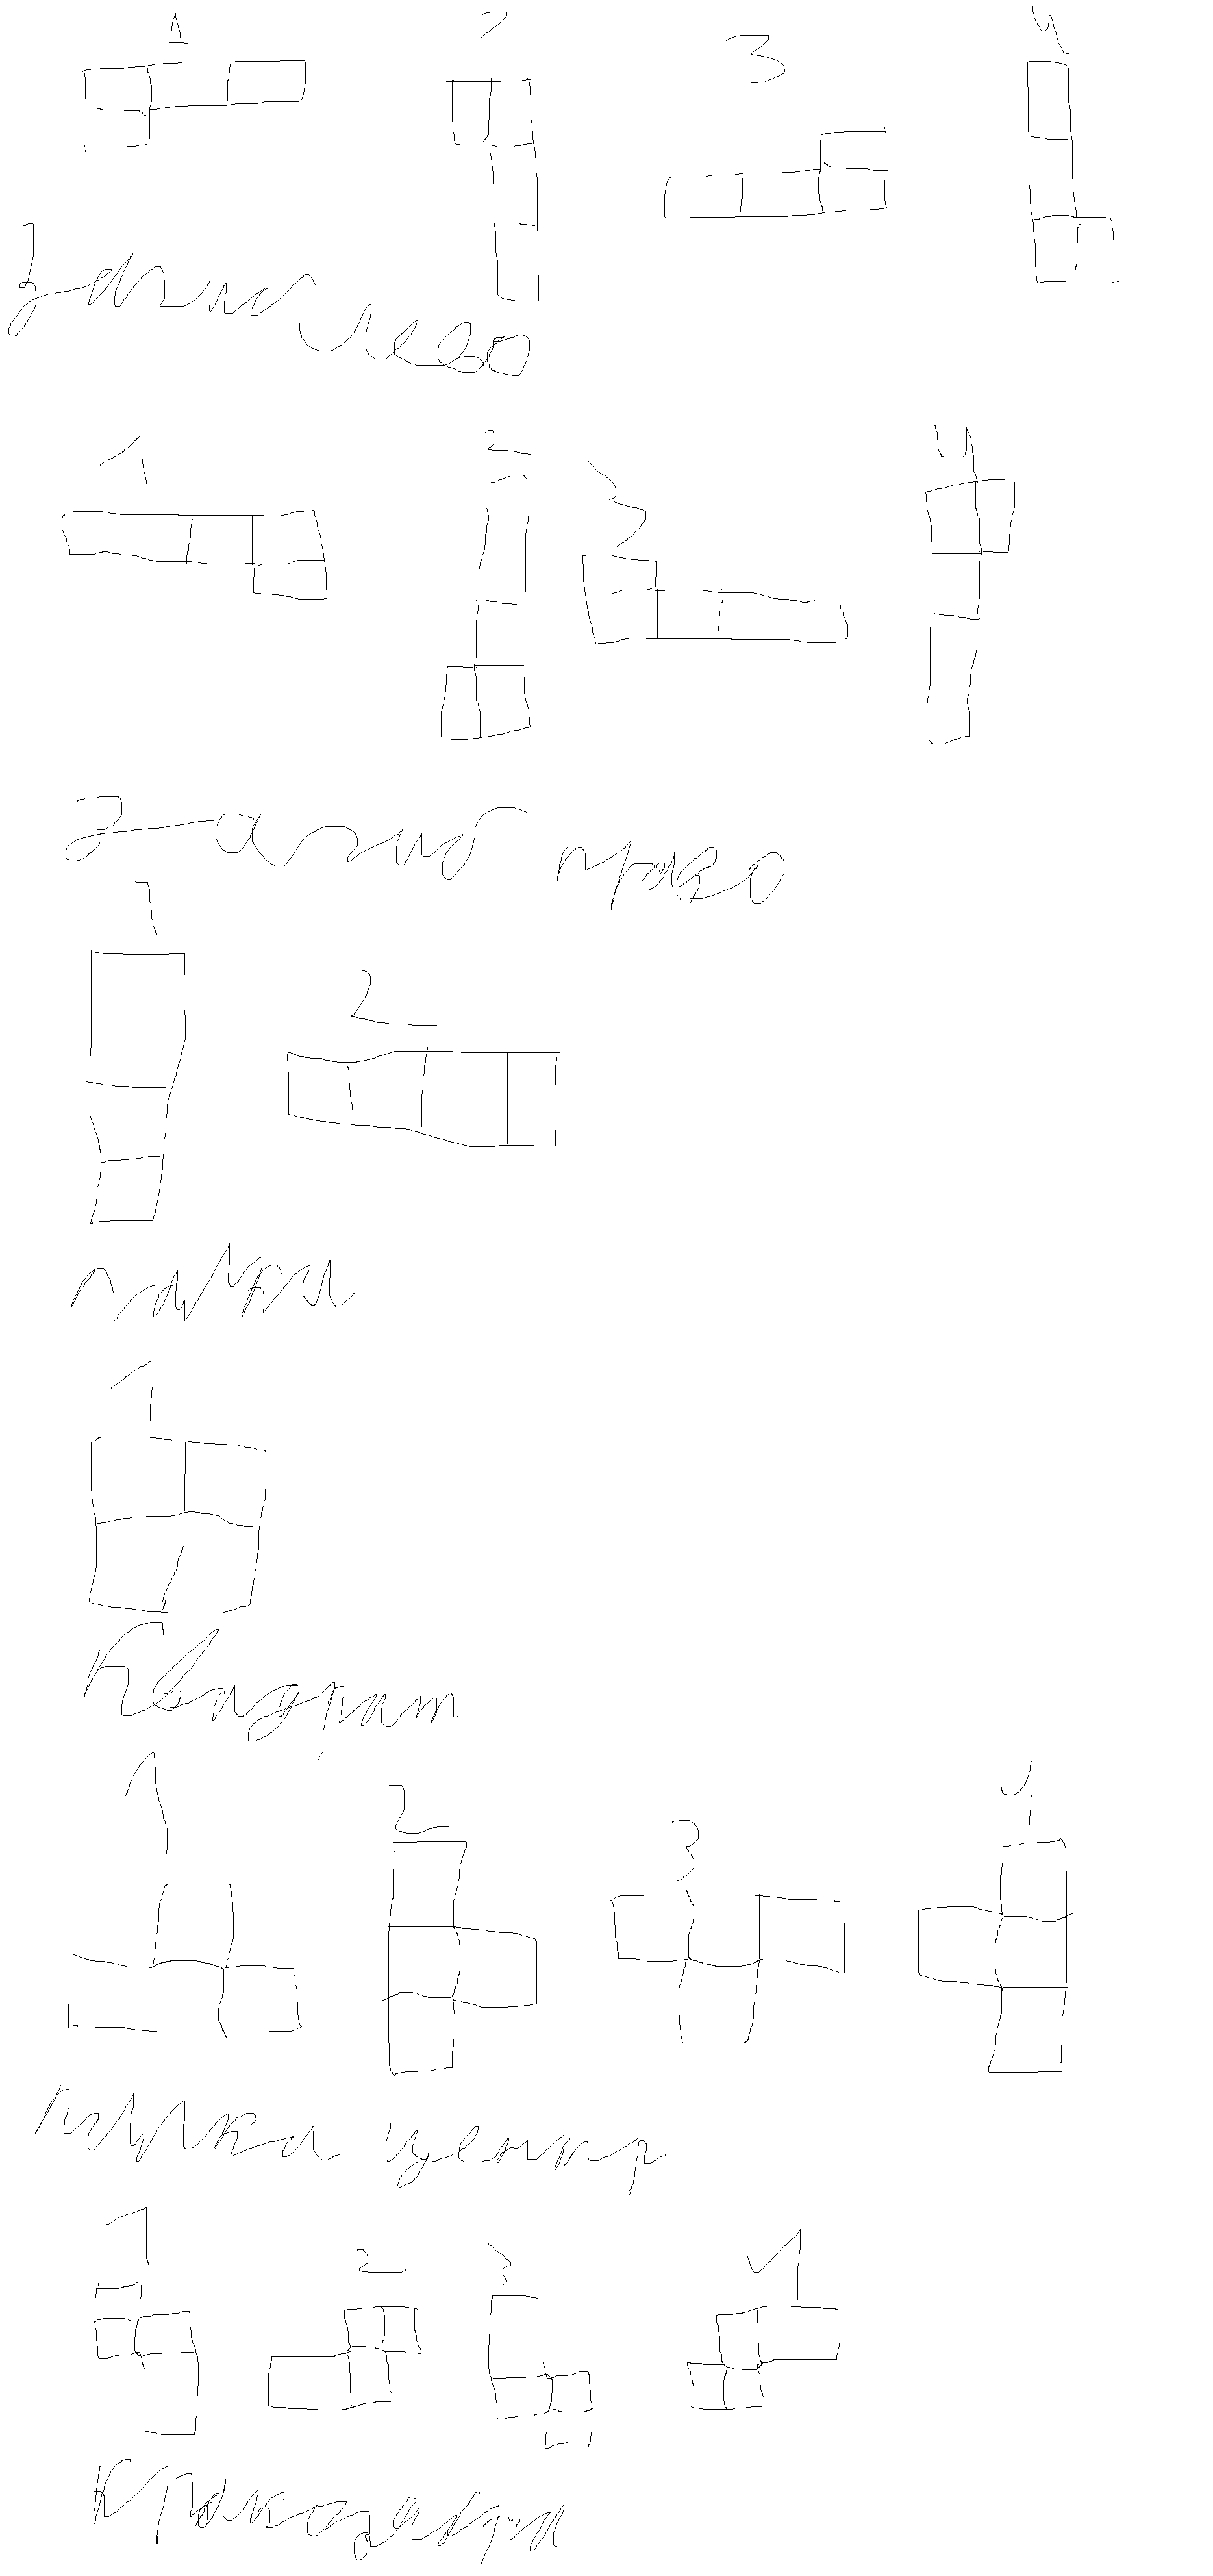 1 2 3 4
загиб лево
1 2 3 4
загиб право
1 2
палка
1
Квадрат
1 2 3 4
палка центр
1 2 3 4